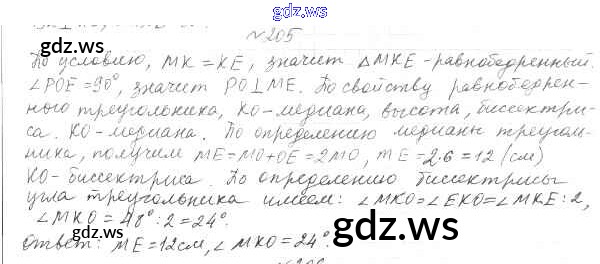 gdz.ws
№205
По условию, MK = KE, значит △MKE - равнобедренный.
∠POE = 90°, значит PO⊥ME. По свойству равнобедрен-
ного треугольника, KO - медиана, высота, биссектри-
са. KO - медиана. По определению медианы треуголь-
ника, получим ME = MO + OE = 2MO, ME = 2·6 = 12 (см)
KO - биссектриса. По определению биссектрисы
угла треугольника имеем: ∠MKO = ∠EKO = ∠MKE : 2,
∠MKO = 48° : 2 = 24°.
Ответ: ME = 12 см, ∠MKO = 24°.
gdz.ws